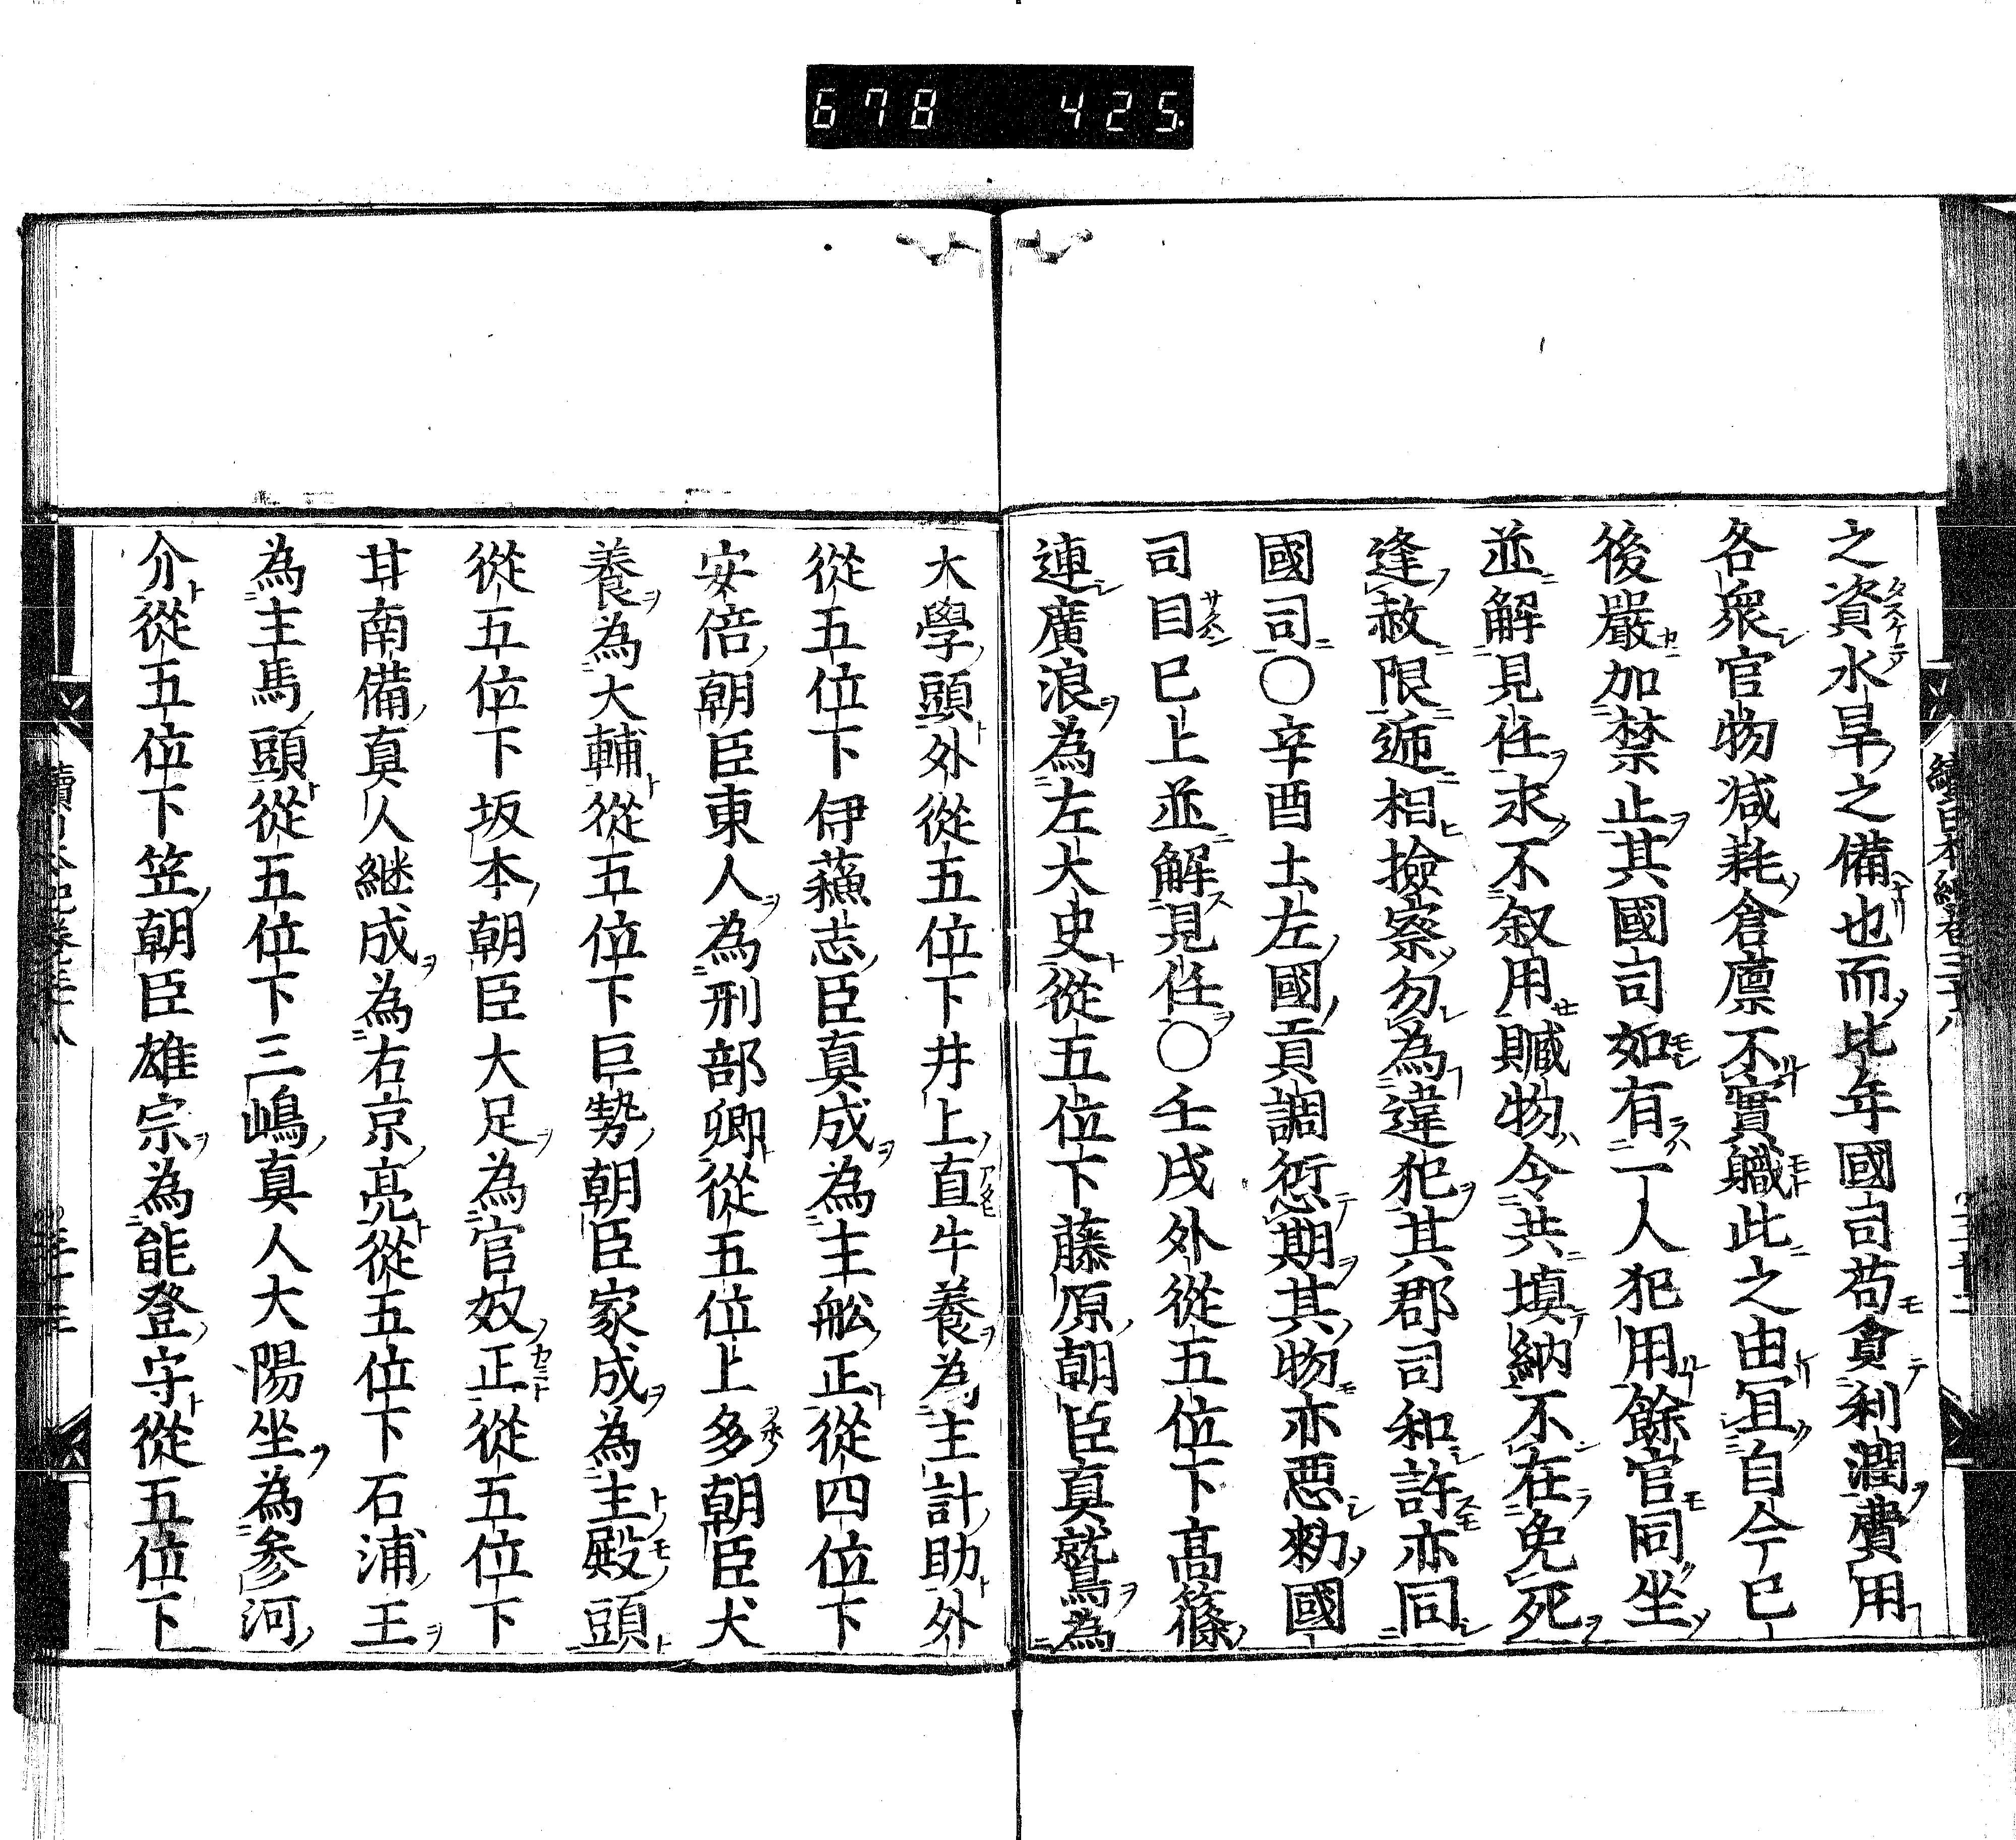 678 425
之資水旱之備也而比年國司苟貪利潤費用
各衆官物減耗倉廩不實職此之由冝自今已
後嚴加禁止其國司如有一人犯用餘官同坐
並解見任永不叙用贓物令共填納不在免死
逢赦限遞相撿察勿為違犯其郡司和許亦同
國司〇辛酉土左國貢調愆期其物亦悪勑國
司目已上並解見任〇壬戌外從五位下髙篠
連廣浪為左大史從五位下藤原朝臣真鷲為
大學頭外從五位下井上直牛養為主計助外
從五位下伊蘓志臣真成為主舩正從四位下
安倍朝臣東人為刑部卿從五位上多朝臣犬
養為大輔從五位下巨勢朝臣家成為主殿頭
從五位下坂本朝臣大足為官奴正從五位下
甘南備真人継成為右京亮從五位下石浦王
為主馬頭從五位下三嶋真人大陽坐為参河
介從五位下笠朝臣雄宗為能登守從五位下